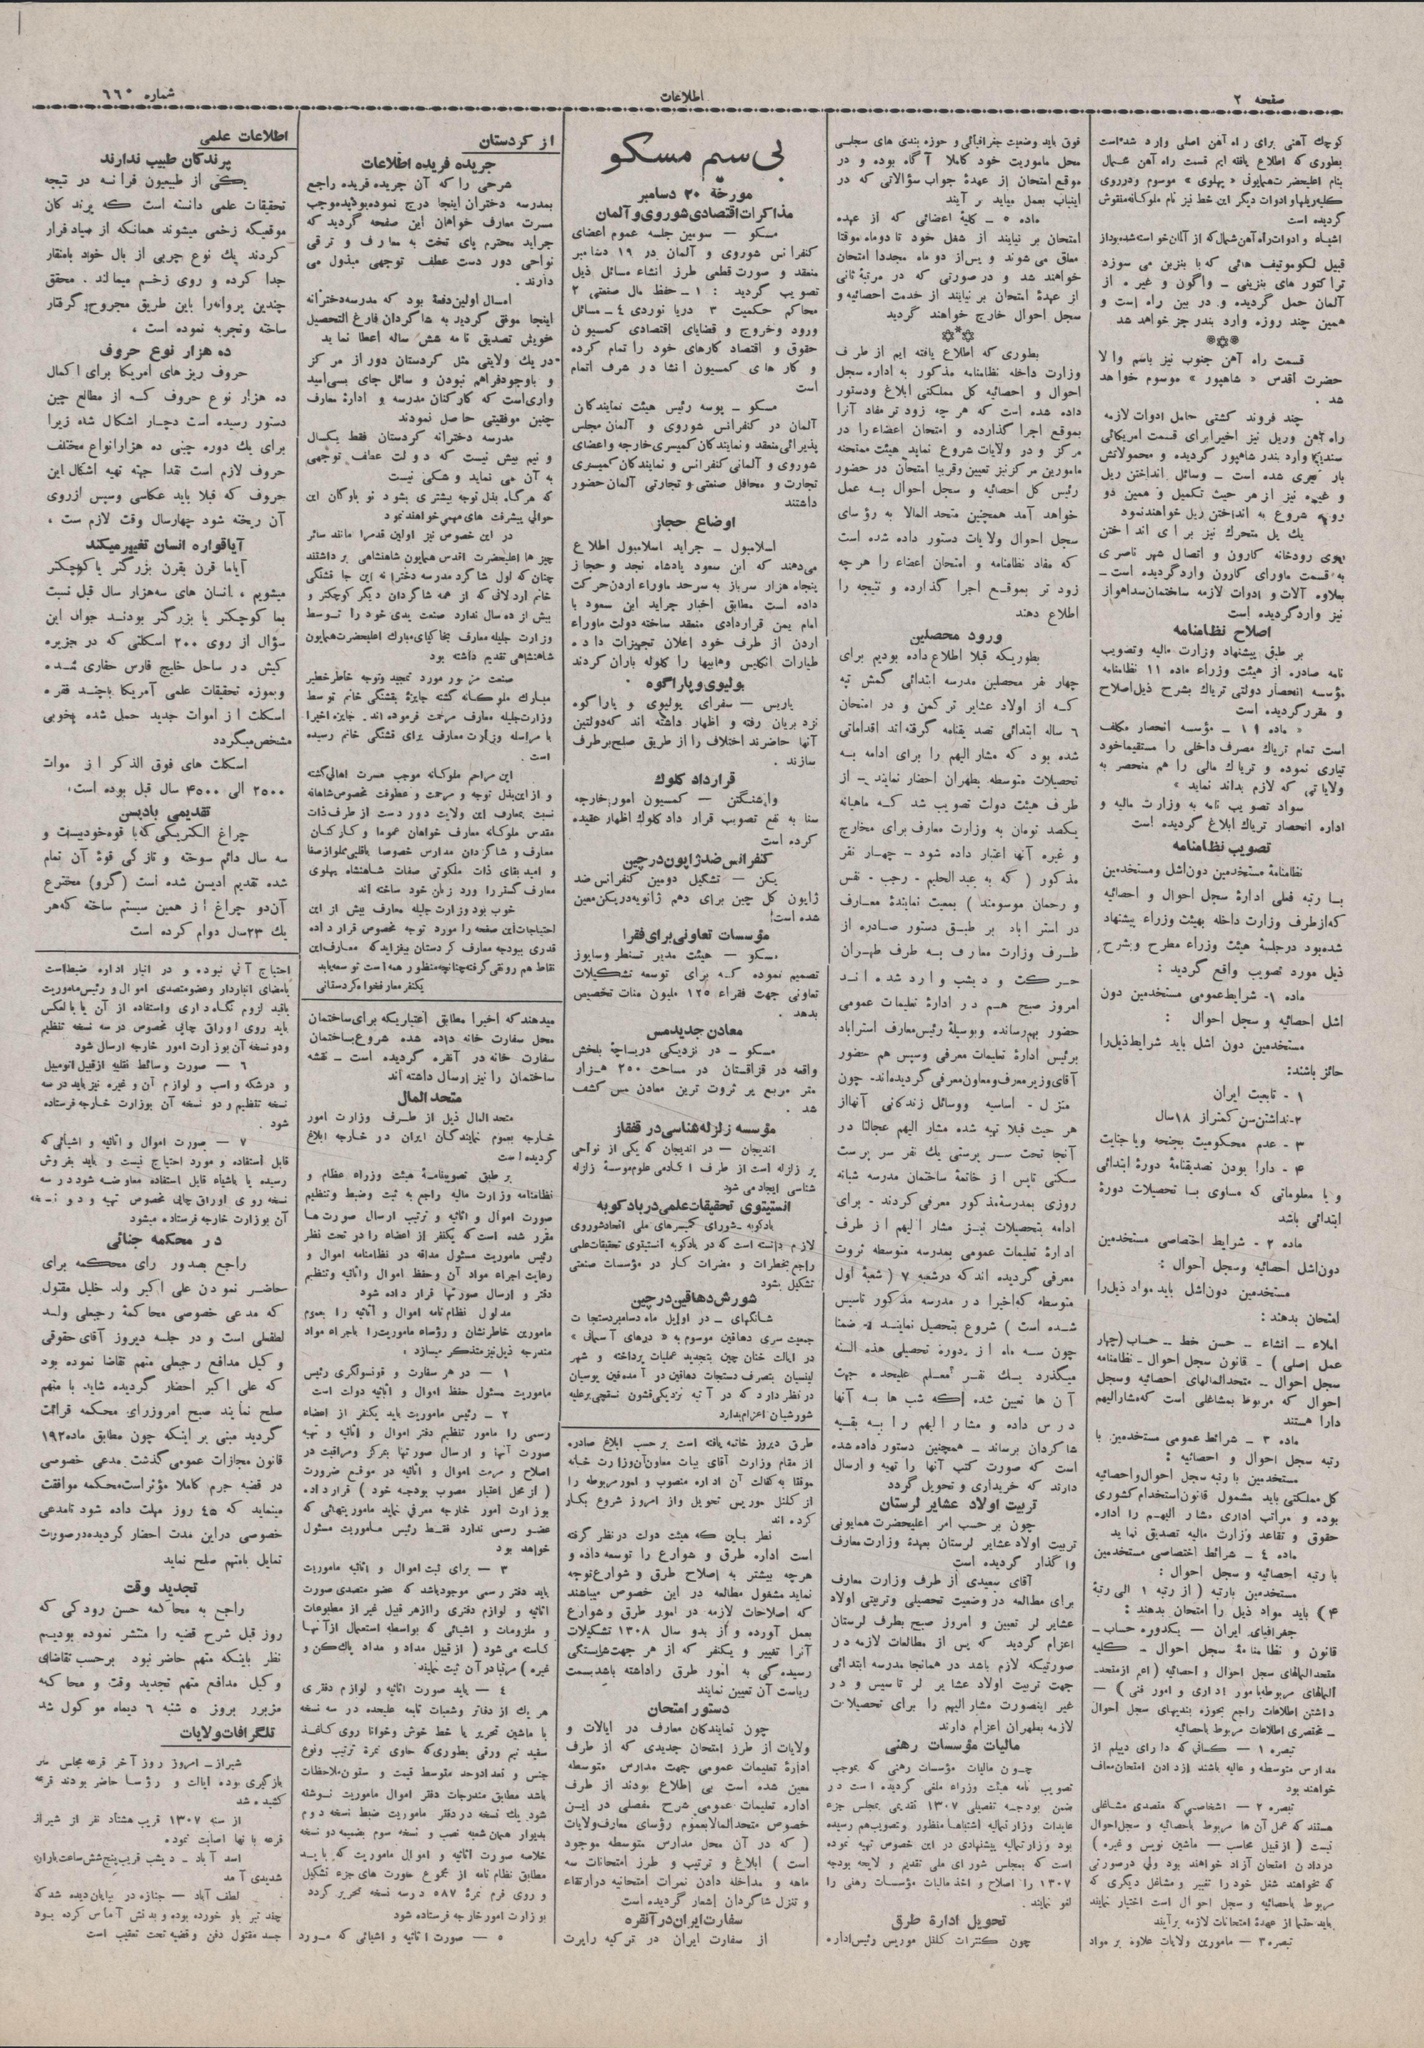 صفحه ۲
اطلاعات
شماره ۶۶۰
کوچك آهنی برای راه آهن اصلی وارد شده است
بطوری که اطلاع یافته ایم قسمت راه آهن شمال
بنام اعلیحضرت همایونی « پهلوی » موسوم و در روی
کلیه ریلها و ادوات دیگر این خط نیز نام ملوکانه منقوش
گردیده است
اشیاء و ادوات راه آهن شمال که از آلمان خواسته شده بود از
قبیل لکوموتیف هائی که با بنزین می سوزد
تراکتور های بنزینی ــ واگون و غیره . از
آلمان حمل گردیده و در بین راه است و
همین چند روزه وارد بندر جز خواهد شد
قسمت راه آهن جنوب نیز باسم والا
حضرت اقدس « شاهپور » موسوم خواهد
شد .
چند فروند کشتی حامل ادوات لازمه
راه آهن وریل نیز اخیرا برای قسمت امریکائی
وارد بندر شاهپور گردیده و محمولاتش
شده است ــ وسائل انداختن ریل
و غیره نیز از هر حیث تکمیل و همین دو
روزه شروع به انداختن ریل خواهند نمود
یك پل متحرك نیز برای انداختن
بروی رودخانه کارون و اتصال شهر ناصری
به قسمت ماورای کارون وارد گردیده است ــ
بعلاوه آلات و ادوات لازمه ساختمان سد اهواز
نیز وارد گردیده است
اصلاح نظامنامه
بر طبق پیشنهاد وزارت مالیه و تصویب
نامه صادره از هیئت وزراء ماده ۱۱ نظامنامه
مؤسسه انحصار دولتی تریاك بشرح ذیل اصلاح
و مقرر گردیده است
« ماده ۱۱ ــ مؤسسه انحصار مکلف
است تمام تریاك مصرف داخلی را مستقیما خود
تیاری نموده و تریاك مالی را هم منحصر به
ولایاتی که لازم بداند نماید »
سواد تصویب نامه به وزارت مالیه و
اداره انحصار تریاك ابلاغ گردیده است
تصویب نظامنامه
نظامنامهٔ مستخدمین دون اشل و مستخدمین
با رتبه فعلی ادارهٔ سجل احوال و احصائیه
که از طرف وزارت داخله بهیئت وزراء پیشنهاد
شده بود در جلسهٔ هیئت وزراء مطرح و بشرح
ذیل مورد تصویب واقع گردید :
ماده ۱ـ شرایط عمومی مستخدمین دون
اشل احصائیه و سجل احوال :
مستخدمین دون اشل باید شرایط ذیل را
حائز باشند:
۱ - تابعیت ایران
۲ـ نداشتن سن کمتر از ۱۸ سال
۳ - عدم محکومیت بجنحه و یا جنایت
۴ - دارا بودن تصدیقنامهٔ دورهٔ ابتدائی
و یا معلوماتی که مساوی بسا تحصیلات دورهٔ
ابتدائی باشد
ماده ۲ - شرایط اختصاصی مستخدمین
دون اشل احصائیه و سجل احوال :
مستخدمین دون اشل باید مواد ذیل را
امتحان بدهند :
املاء ــ انشاء ــ حسن خط ــ حساب (چهار
عمل اصلی ) - قانون سجل احوال ـ نظامنامه
سجل احوال ــ متحدالمالهای احصائیه و سجل
احوال که مربوط بمشاغلی است که مشارالیهم
دارا هستند
ماده ۳ ــ شرائط عمومی مستخدمین با
رتبه سجل احوال و احصائیه :
مستخدمین با رتبه سجل احوال و احصائیه
کل مملکتی باید مشمول قانون استخدام کشوری
بوده و مراتب اداری مشار الیهم را اداره
حقوق و تقاعد وزارت مالیه تصدیق نماید
ماده ٤ ــ شرائط اختصاصی مستخدمین
با رتبه احصائیه و سجل احوال :
مستخدمین بارتبه ( از رتبه ۱ الی رتبهٔ
۴) باید مواد ذیل را امتحان بدهند :
جغرافیای ایران ــ یکدوره حساب ــ
قانون و نظامنامهٔ سجل احوال ــ کلیه
متحدالمالهای سجل احوال و احصائیه ( اعم از متحدـ
المالهای مربوطه بامور اداری و امور فنی ) ــ
داشتن اطلاعات راجع بحوزه بندیهای سجل احوال
ــ مختصری اطلاعات مربوط باحصائیه
تبصره ۱ ــ کسانی که دارای دیپلم از
مدارس متوسطه و عالیه باشند از دادن امتحان معاف
خواهند بود
تبصره ۲ ــ اشخاصی که متصدی مشاغلی
هستند که عمل آن ها مربوط باحصائیه و سجل احوال
نیست ( از قبیل محاسب ــ ماشین نویس و غیره )
در دادن امتحان آزاد خواهند بود ولی در صورتی
که بخواهند شغل خود را تغییر و مشاغل دیگری که
مربوط باحصائیه و سجل احوال است اختیار نمایند
باید حتما از عهدهٔ امتحانات لازمه برآیند
تبصره ۳ ــ مامورین ولایات علاوه بر مواد
فوق باید وضعیت جغرافیائی و حوزه بندی های سجلی
محل ماموریت خود کاملا آگاه بوده و در
موقع امتحان از عهدهٔ جواب سؤالاتی که در
اینباب بعمل میاید بر آیند
ماده ٥ ــ کلیهٔ اعضائی که از عهده
امتحان بر نیایند از شغل خود تا دو ماه موقتا
معاف می شوند و پس از دو ماه مجددا امتحان
خواهند شد و در صورتی که در مرتبهٔ ثانی
از عهدهٔ امتحان بر نیایند از خدمت احصائیه و
سجل احوال خارج خواهند گردید
بطوری که اطلاع یافته ایم از طرف
وزارت داخله نظامنامه مذکور به اداره سجل
احوال و احصائیه کل مملکتی ابلاغ و دستور
داده شده است که هر چه زود تر مفاد آنرا
بموقع اجرا گذارده و امتحان اعضاء را در
مرکز و در ولایات شروع نماید هیئت ممتحنه
مامورین مرکز نیز تعیین و قریبا امتحان در حضور
رئیس کل احصائیه و سجل احوال به عمل
خواهد آمد همچنین متحد المالا به رؤسای
سجل احوال ولایات دستور داده شده است
که مفاد نظامنامه و امتحان اعضاء را هر چه
زود تر بموقع اجرا گذارده و نتیجه را
اطلاع دهند
ورود محصلین
بطوریکه قبلا اطلاع داده بودیم برای
چهار نفر محصلین مدرسه ابتدائی گمش تپه
که از اولاد عشایر ترکمن و در امتحان
٦ ساله ابتدائی تصدیقنامه گرفته اند اقداماتی
شده بود که مشار الیهم را برای ادامه به
تحصیلات متوسطه بطهران احضار نمایند ــ از
طرف هیئت دولت تصویب شد که ماهیانه
یکصد تومان به وزارت معارف برای مخارج
و غیره آنها اعتبار داده شود ــ چهار نفر
مذکور ( که به عبد الحلیم ـ رجب ـ نفس
و رحمان موسومند ) بمعیت نمایندهٔ معارف
در استر آباد بر طبق دستور صادره از
طرف وزارت معارف به طرف طهران
حرکت و دیشب وارد شده اند
امروز صبح هم در ادارهٔ تعلیمات عمومی
حضور بهمرسانده و بوسیلهٔ رئیس معارف استراباد
برئیس ادارهٔ تعلیمات معرفی و سپس هم حضور
آقای وزیر معارف و معاون معرفی گردیده اند ـ چون
منزل ـ اساسیه و وسائل زندگانی آنها از
هر حیث قبلا تهیه شده مشار الیهم عجالتا در
آنجا تحت سر پرستی یك نفر سر پرست
سکنی تا پس از خاتمهٔ ساختمان مدرسه شبانه
روزی بمدرسهٔ مذکور معرفی گردند ـ برای
ادامه بتحصیلات نیز مشار الیهم از طرف
ادارهٔ تعلیمات عمومی بمدرسه متوسطه ثروت
معرفی گردیده اند که در شعبه ۷ ( شعبهٔ اول
متوسطه که اخیرا در مدرسه مذکور تاسیس
شده است ) شروع بتحصیل نمایند - ضمنا
چون سه ماه از دوره تحصیلی هذه السنه
میگذرد یك نفر معلم علیحده جهت
آن ها تعیین شده که شب ها به آنها
درس داده و مشار الیهم را به بقیه
شاگردان برساند ــ همچنین دستور داده شده
است که صورت کتب آنها را تهیه و ارسال
دارند که خریداری و تحویل گردد
تربیت اولاد عشایر لرستان
چون بر حسب امر اعلیحضرت همایونی
تربیت اولاد عشایر لرستان بعهدهٔ وزارت معارف
واگذار گردیده است
آقای سعیدی از طرف وزارت معارف
برای مطالعه در وضعیت تحصیلی و تربیتی اولاد
عشایر لر تعیین و امروز صبح بطرف لرستان
اعزام گردید که پس از مطالعات لازمه در
صورتیکه لازم باشد در همانجا مدرسه ابتدائی
جهت تربیت اولاد عشایر لر تاسیس و در
غیر اینصورت مشار الیهم را برای تحصیلات
لازمه بطهران اعزام دارند
مالیات مؤسسات رهنی
چون مالیات مؤسسات رهنی که بموجب
تصویب نامه هیئت وزراء ملغی گردیده است در
ضمن بودجه تفصیلی ۱۳۰۷ تقدیمی بمجلس جزء
عایدات وزارتمالیه اشتباها منظور و تصویب هم رسیده
بود وزارتمالیه پیشنهادی در این خصوص تهیه نموده
است که بمجلس شورای ملی تقدیم و لایحه بودجه
۱۳۰۷ را اصلاح و اخذ مالیات مؤسسات رهنی را
لغو نمایند .
تحویل ادارهٔ طرق
چون کنترات کلنل موریس رئیس اداره
بی سیم مسکو
مورخهٔ ۲۰ دسامبر
مذاکرات اقتصادی شوروی و آلمان
مسکو ــ سومین جلسه عموم اعضای
کنفرانس شوروی و آلمان در ۱۹ دسامبر
منعقد و صورت قطعی طرز انشاء مسائل ذیل
تصویب گردید : ۱ ــ حفظ مال صنعتی ۲
محاکم حکمیت ۳ دریا نوردی ٤ ــ مسائل
ورود و خروج و قضایای اقتصادی کمسیون
حقوق و اقتصاد کارهای خود را تمام کرده
و کارهای کمسیون انشاء در شرف اتمام
است
مسکو ــ پوسه رئیس هیئت نمایندگان
آلمان در کنفرانس شوروی و آلمان مجلس
پذیرائی منعقد و نمایندگان کمیسری خارجه و اعضای
شوروی و آلمانی کنفرانس و نمایندگان کمیسری
تجارت و محافل صنعتی و تجارتی آلمان حضور
داشتند
اوضاع حجاز
اسلامبول ــ جراید اسلامبول اطلاع
می‌دهند که ابن سعود پادشاه نجد و حجاز
پنجاه هزار سرباز به سرحد ماوراء اردن حرکت
داده است مطابق اخبار جراید ابن سعود با
امام یمن قراردادی منعقد ساخته دولت ماوراء
اردن از طرف خود اعلان تجهیزات داده
طیارات انگلیس وهابیها را گلوله باران کردند
بولیوی و پاراگوه
پاریس ــ سفرای بولیوی و پاراگوه
نزد بریان رفته و اظهار داشته اند که دولتین
آنها حاضرند اختلاف را از طریق صلح برطرف
سازند .
قرارداد کلوك
واشنگتن ــ کمسیون امور خارجه
سنا به نفع تصویب قرار داد کلوك اظهار عقیده
کرده است
کنفرانس ضد ژاپون در چین
پکن ــ تشکیل دومین کنفرانس ضد
ژاپون کل چین برای دهم ژانویه در پکن معین
شده است!
مؤسسات تعاونی برای فقرا
مسکو ــ هیئت مدیر تسنطر و سایوز
تصمیم نموده که برای توسعه تشکیلات
تعاونی جهت فقراء ۱۲۵ ملیون منات تخصیص
بدهد .
معادن جدید مس
مسکو ــ در نزدیکی دریاچهٔ بلخش
واقعه در قزاقستان در مساحت ۲۵۰ هزار
متر مربع پر ثروت ترین معادن مس کشف
شد .
مؤسسه زلزله شناسی در قفقاز
اندیجان ــ در اندیجان که یکی از نواحی
پر زلزله است از طرف آکادمی علوم مؤسسهٔ زلزله
شناسی ایجاد می شود
انستیتوی تحقیقات علمی در بادکوبه
بادکوبه ــ شورای کمیسرهای ملی اتحاد شوروی
لازم دانسته است که در بادکوبه انستیتوی تحقیقات علمی
راجع بخطرات و مضرات کار در مؤسسات صنعتی
تشکیل بشود
شورش دهاقین در چین
شانگهای ــ در اوایل ماه دسامبر دستجات
جمعیت سری دهاقین موسوم به « درهای آسمانی »
در ایالت خنان چین بتجدید عملیات پرداخته و شهر
لینسیان بتصرف دستجات دهاقین در آمده فین یوسیان
در نظر دارد که در آتیه نزدیکی قشون نسقچی بر علیه
شورشیان اعزام بدارد
طرق دیروز خاتمه یافته است بر حسب ابلاغ صادره
از مقام وزارت آقای بیات معاون آن وزارت خانه
موقتا به کفالت آن اداره منصوب و امور مربوطه را
از کلنل موریس تحویل و از امروز شروع بکار
کرده اند
نظر باین که هیئت دولت در نظر گرفته
است اداره طرق و شوارع را توسعه داده و
هرچه بیشتر به اصلاح طرق و شوارع توجه
نماید مشغول مطالعه در این خصوص میباشند
که اصلاحات لازمه در امور طرق و شوارع
بعمل آورده و از بدو سال ۱۳۰۸ تشکیلات
آنرا تغییر و یکنفر که از هر جهت شایستگی
رسیدگی به امور طرق را داشته باشد بسمت
ریاست آن تعیین نمایند
دستور امتحان
چون نمایندگان معارف در ایالات و
ولایات از طرز امتحان جدیدی که از طرف
ادارهٔ تعلیمات عمومی جهت مدارس متوسطه
معین شده است بی اطلاع بودند از طرف
اداره تعلیمات عمومی شرح مفصلی در این
خصوص متحدالمالا بعموم رؤسای معارف ولایات
( که در آن محل مدارس متوسطه موجود
است ) ابلاغ و ترتیب و طرز امتحانات سه
ماهه و مداخله دادن نمرات امتحانیه در ارتقاء
و تنزل شاگردان اشعار گردیده است
سفارت ایران در آنقره
از سفارت ایران در ترکیه راپرت
از کردستان
جریده فریده اطلاعات
شرحی را که آن جریده فریده راجع
بمدرسه دختران اینجا درج نموده بودید موجب
مسرت معارف خواهان این صفحه گردید که
جراید محترم پای تخت به معارف و ترقی
نواحی دور دست عطف توجهی مبذول می
دارند .
امسال اولین دفعهٔ بود که مدرسه دخترانه
اینجا موفق گردید به شاگردان فارغ التحصیل
خویش تصدیق نامه شش ساله اعطا نماید
در یك ولایتی مثل کردستان دور از مرکز
و باوجود فراهم نبودن وسائل جای بسی امید
واری است که کارکنان مدرسه و ادارهٔ معارف
چنین موفقیتی حاصل نمودند
مدرسه دخترانه کردستان فقط یکسال
و نیم بیش نیست که دولت عطف توجهی
به آن می نماید و شکی نیست
که هرگاه بذل توجه بیشتری بشود نوباوگان این
حوالی پیشرفت های مهمی خواهند نمود
در این خصوص نیز اولین قدمرا مانند سائر
چیز ها اعلیحضرت اقدس همایون شاهنشاهی برداشتند
چنان که اول شاگرد مدرسه دخترانه این جا قشنگی
خانم اردلان که از همه شاگردان دیگر کوچکتر و
بیش از ده سال ندارد صنعت یدی خود را توسط
وزارت جلیله معارف بخاکپای مبارك اعلیحضرت همایون
شاهنشاهی تقدیم داشته بود
صنعت مزبور مورد تمجید و توجه خاطر خطیر
مبارك ملوکانه گشته جایزهٔ بقشنگی خانم توسط
وزارت جلیله معارف مرحمت فرموده اند . جایزه اخیرا
با مراسله وزارت معارف برای قشنگی خانم رسیده
است .
این مراحم ملوکانه موجب مسرت اهالی گشته
و از این بذل توجه و مرحمت و عطوفت مخصوص شاهانه
نسبت بمعارف این ولایت دور دست از طرف ذات
مقدس ملوکانه معارف خواهان عموما و کارکنان
معارف و شاگردان مدارس خصوصا باقلبی مملو از صفا
و امید بقای ذات ملکوتی صفات شاهنشاه پهلوی
معارف گستر را ورد زبان خود ساخته اند
خوب بود وزارت جلیله معارف بیش از این
احتیاجات این صفحه را مورد توجه مخصوص قرار داده
قدری ببودجه معارف کردستان بیفزاید که معارف این
نقاط هم رونقی گرفته چنانچه منظور همه است توسعه یابد
یکنفر معارفخواه کردستانی
میدهند که اخیرا مطابق اعتباریکه برای ساختمان
محل سفارت خانه داده شده شروع بساختمان
سفارت خانه در آنقره گردیده است ــ نقشه
ساختمان را نیز ارسال داشته اند
متحد المال
متحد المال ذیل از طرف وزارت امور
خارجه بعموم نمایندگان ایران در خارجه ابلاغ
گردیده است
بر طبق تصویبنامهٔ هیئت وزراء عظام و
نظامنامه وزارت مالیه راجع به ثبت و ضبط و تنظیم
صورت اموال و اثاثیه و ترتیب ارسال صورت ها
مقرر شده است که یکنفر از اعضاء را در تحت نظر
رئیس ماموریت مسئول مداقه در نظامنامه اموال و
رعایت اجراء مواد آن و حفظ اموال و اثاثیه و تنظیم
دفتر و ارسال صورتها قرار داده شود
مدلول نظام نامه اموال و اثاثیه را بعموم
مامورین خاطر نشان و رؤساء ماموریت را باجراء مواد
مندرجه ذیل نیز متذکر میسازد :
۱ ــ در هر سفارت و قونسولگری رئیس
ماموریت مسئول حفظ اموال و اثاثیه دولت است
۲ ــ رئیس ماموریت باید یکنفر از اعضاء
رسمی را مامور تنظیم دفتر اموال و اثاثیه و تهیه
صورت آنها و ارسال صورتها بمرکز و مراقبت در
اصلاح و مرمت اموال و اثاثیه در موقع ضرورت
( از محل اعتبار مصوب بودجه خود ) قرار داده
بوزارت امور خارجه معرفی نماید ماموریتهائی که
عضو رسمی ندارد فقط رئیس ماموریت مسئول
خواهد بود
۳ ــ برای ثبت اموال و اثاثیه ماموریت
باید دفتر رسمی موجود باشد که عضو متصدی صورت
اثاثیه و لوازم دفتری را از هر قبیل غیر از مطبوعات
و ملزومات و اشیائی که بواسطه استعمال از آنها
کاسته می شود ( از قبیل مداد و مداد پاك کن و
غیره ) مرتبا در آن ثبت نمایند
٤ ــ باید صورت اثاثیه و لوازم دفتری
هر یك از دفاتر و شعبات تابعه علیحده در سه نسخه
با ماشین تحریر یا خط خوش و خوانا روی کاغذ
سفید نیم ورقی بطوری که حاوی نمرهٔ ترتیب و نوع
جنس و تعداد و حد متوسط قیمت و ستون ملاحظات
باشد مطابق مندرجات دفتر اموال ماموریت نوشته
شود یك نسخه در دفتر ماموریت ضبط نسخه دوم
بدیوار همان شعبه نصب و نسخه سوم بضمیمه دو نسخه
خلاصه صورت اثاثیه و اموال ماموریت که باید
مطابق نظام نامه از مجموع صورت های جزء تشکیل
و روی فرم نمرهٔ ۵۸۷ در سه نسخه تحریر گردد
بوزارت امور خارجه فرستاده شود
٥ ــ صورت اثاثیه و اشیائی که مورد
اطلاعات علمی
پرندگان طبیب ندارند
یکی از طبیعیون فرانسه در نتیجه
تحقیقات علمی دانسته است که پرندگان
موقعیکه زخمی میشوند همانکه از صیاد فرار
کردند یك نوع چربی از بال خود بامنقار
جدا کرده و روی زخم میمالند . محقق
چندین پروانه را باین طریق مجروح و گرفتار
ساخته و تجربه نموده است ،
ده هزار نوع حروف
حروف ریز های امریکا برای اکمال
ده هزار نوع حروف که از مطالع چین
دستور رسیده است دچار اشکال شده زیرا
برای یك دوره چینی ده هزار انواع مختلف
حروف لازم است نقدا جهته تهیه اشکال این
حروف که قبلا باید عکاسی و سپس از روی
آن ریخته شود چهار سال وقت لازم ست ،
آیا قواره انسان تغییر میکند
آیا ما قرن بقرن بزرگتر یا کوچکتر
میشویم ، انسان های سه هزار سال قبل نسبت
بما کوچکتر یا بزرگتر بودند جواب این
سؤال از روی ۲۰۰ اسکلتی که در جزیره
کیش در ساحل خلیج فارس حفاری شده
و بموزه تحقیقات علمی آمریکا با چند فقره
اسکلت از اموات جدید حمل شده بخوبی
مشخص میگردد
اسکلت های فوق الذکر از موات
۲۵۰۰ الی ۴۵۰۰ سال قبل بوده است،
تقدیمی بادیسن
چراغ الکتریکی که با قوه خودیست و
سه سال دائم سوخته و تازگی قوهٔ آن تمام
شده تقدیم ادیسن شده است (گرو) مخترع
آن دو چراغ از همین سیستم ساخته که هر
یك ۲۳ سال دوام کرده است
احتیاج آنی نبوده و در انبار اداره ضبط است
بامضای انباردار و عضو متصدی اموال و رئیس ماموریت
باقید لزوم نگاه داری و استفاده از آن یا بالعکس
باید روی اوراق چاپی مخصوص در سه نسخه تنظیم
و دو نسخه آن بوزارت امور خارجه ارسال شود
٦ ــ صورت وسائط نقلیه از قبیل اتومبیل
و درشکه و اسب و لوازم آن و غیره نیز باید در سه
نسخه تنظیم و دو نسخه آن بوزارت خارجه فرستاده
شود .
۷ ــ صورت اموال و اثاثیه و اشیائی که
قابل استفاده و مورد احتیاج نیست و باید بفروش
رسیده یا باشیاء قابل استفاده معاوضه شود در سه
نسخه روی اوراق چاپی مخصوص تهیه و دو نسخه
آن بوزارت خارجه فرستاده میشود
در محکمه جنائی
راجع بصدور رای محکمه برای
حاضر نمودن علی اکبر ولد خلیل مقتول
که مدعی خصوصی محاکمهٔ رجبعلی ولد
لطفعلی است و در جلسه دیروز آقای حقوقی
وکیل مدافع رجبعلی متهم تقاضا نموده بود
که علی اکبر احضار گردیده شاید با متهم
صلح نمایند صبح امروز رای محکمه قرائت
گردید مبنی بر اینکه چون مطابق ماده ۱۹۲
قانون مجازات عمومی گذشت مدعی خصوصی
در قضیه جرم کاملا مؤثر است محکمه موافقت
مینماید که ٤٥ روز مهلت داده شود تا مدعی
خصوصی در این مدت احضار گردیده در صورت
تمایل بامتهم صلح نماید
تجدید وقت
راجع به محاکمه حسن رودکی که
روز قبل شرح قضیه را منتشر نموده بودیم
نظر باینکه متهم حاضر نبود برحسب تقاضای
وکیل مدافع متهم تجدید وقت و محاکمه
مزبور بروز ٥ شنبه ٦ دیماه موکول شد
تلگرافات ولایات
شیراز ــ امروز روز آخر قرعه مجلس
بازگیری بوده ایالت و رؤسا حاضر بودند قرعه
کشیده شد
از سنه ۱۳۰۷ قریب هشتاد نفر از شیراز
قرعه بآنها اصابت نموده .
اسد آباد ــ دیشب قریب پنج شش ساعت باران
شدیدی آمد
لطف آباد ــ جنازه در بیابان دیده شد که
چند تیر باو خورده بوده و بدنش آماس کرده بود
جسد مقتول دفن و قضیه تحت تعقیب است